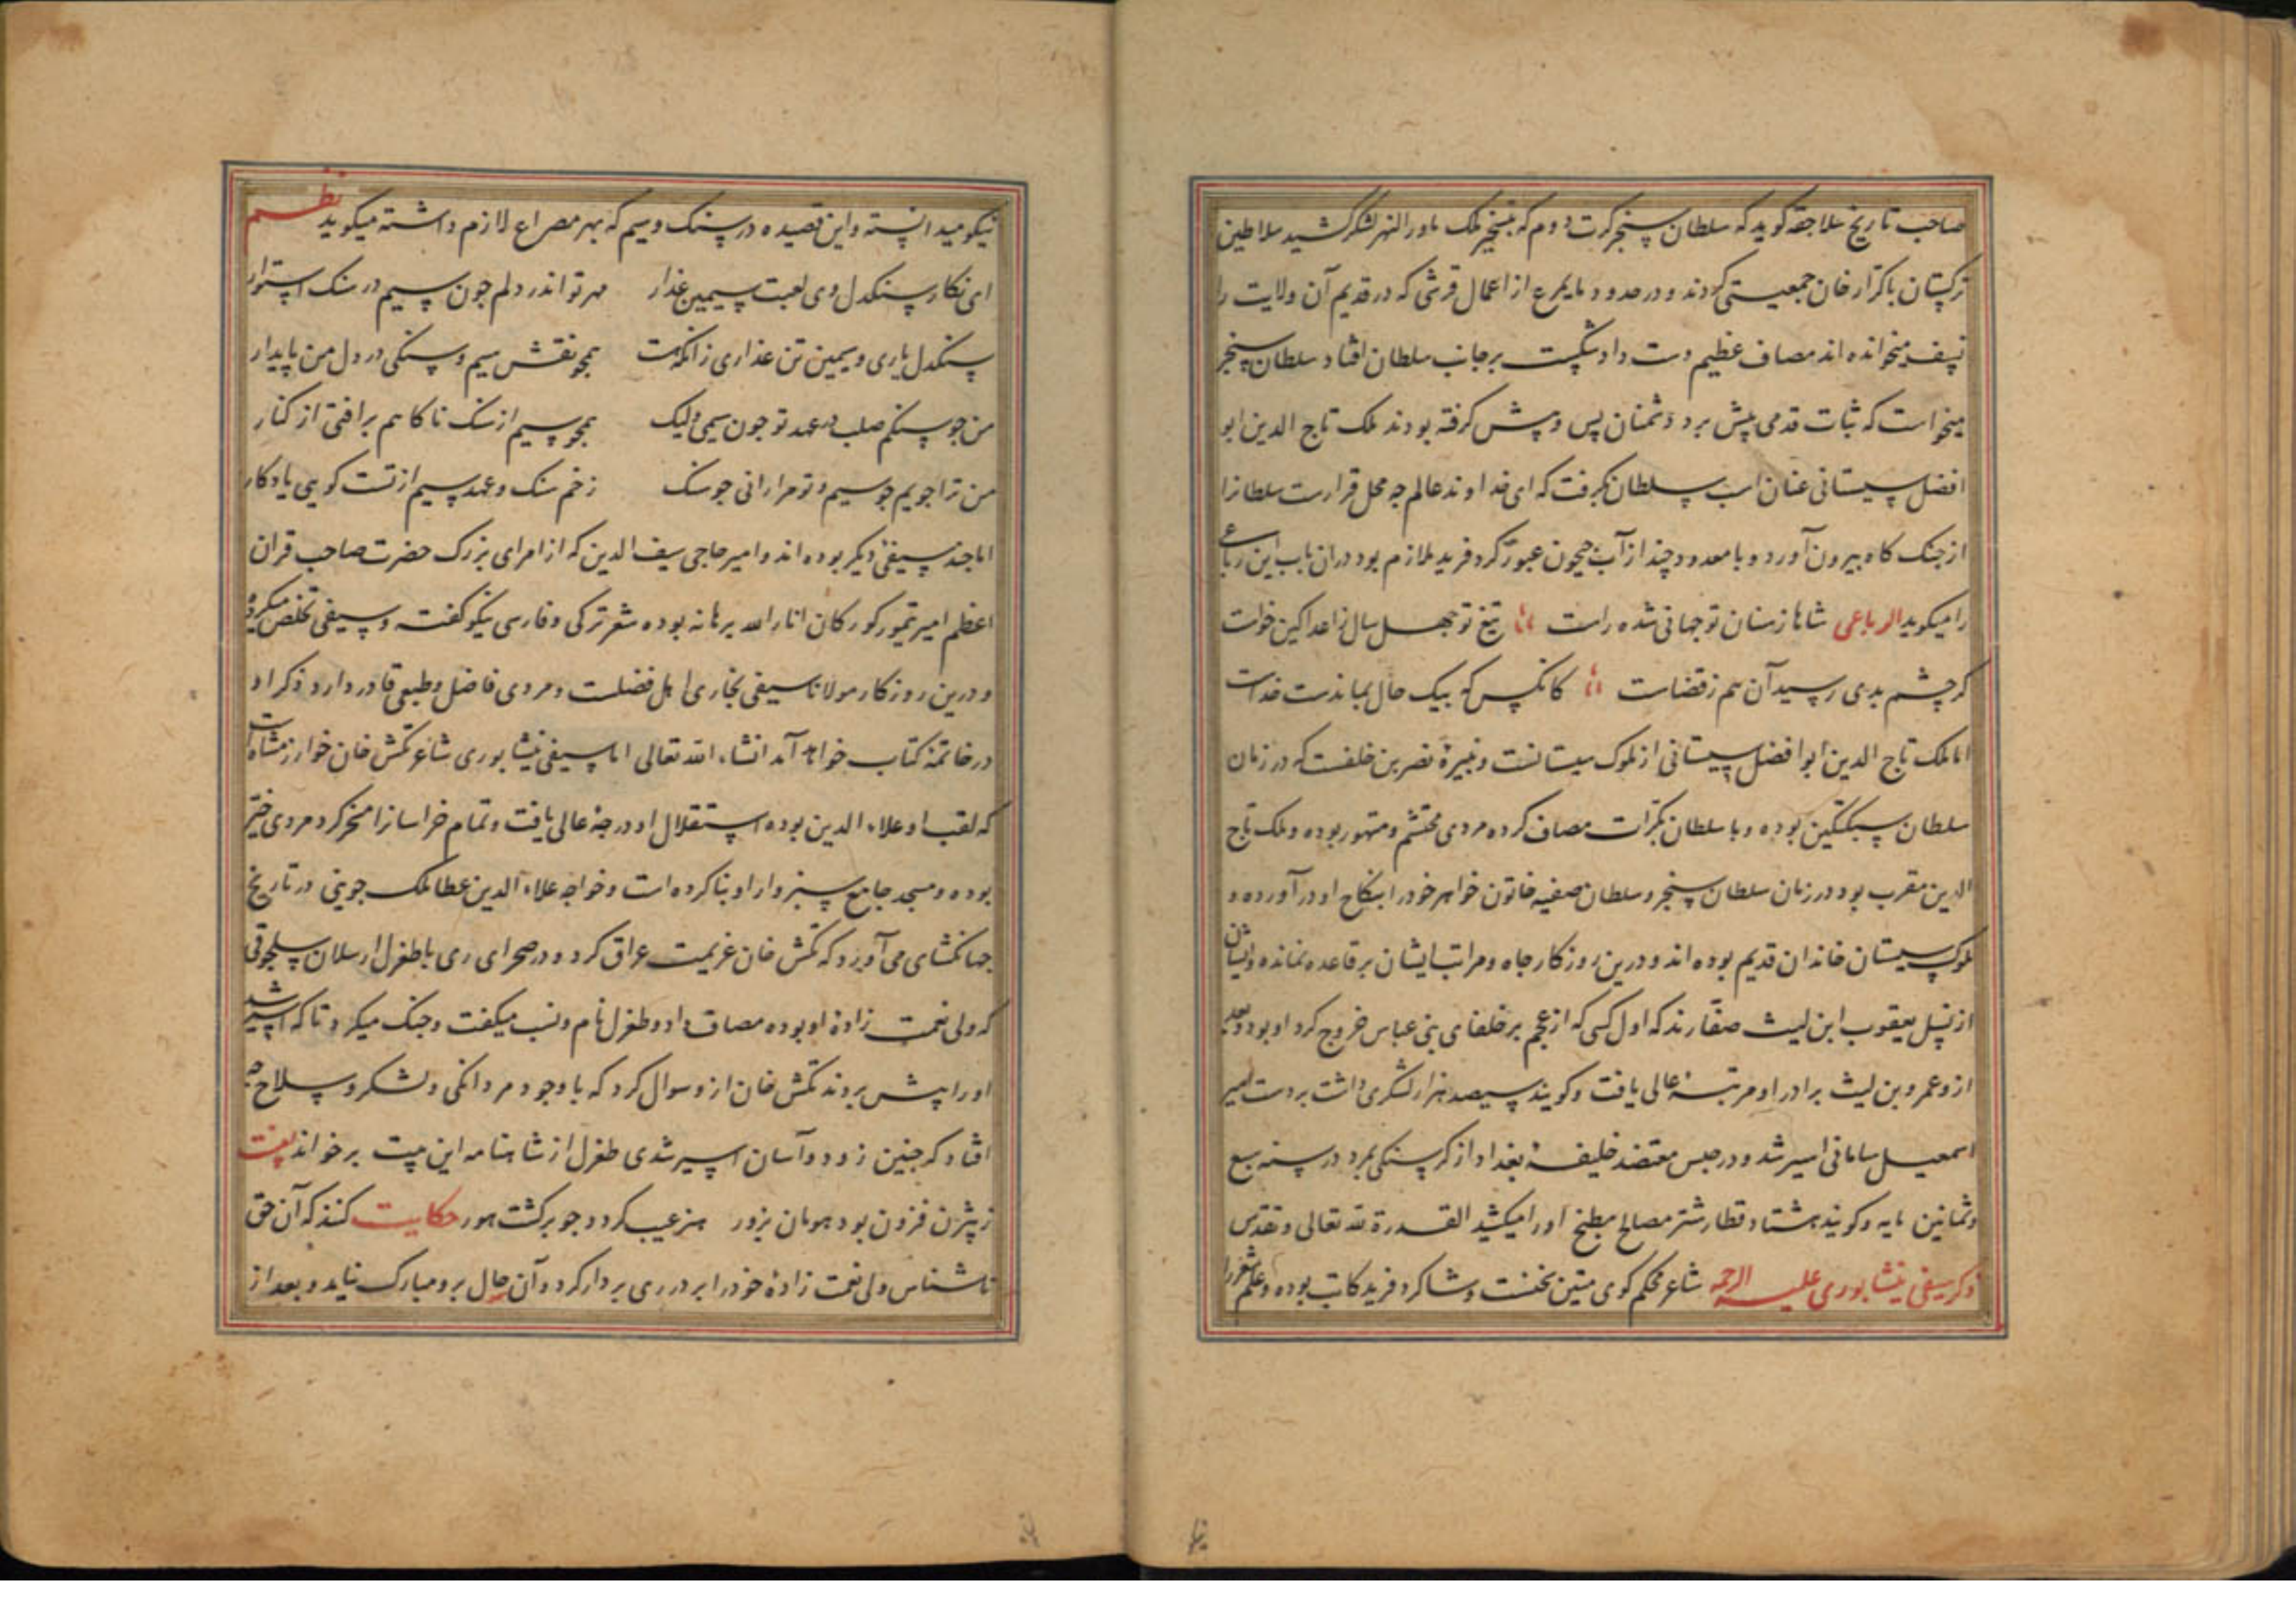 صاحب تاریخ سلاجقه کوید که سلطان سنجر کرت دوم که بتسخیر ملک ماورالنهر لشکر کشید سلاطین
ترکستان با کزار خان جمعیتی کردند و در حدود مایمرع از اعمال قرشی که در قدیم آن ولایت را
نسف میخوانده اند مصاف عظیم دست داد و شکست بر جانب سلطان افتاد سلطان سنجر
میخواست که ثبات قدمی پیش برد دشمنان پس و پیش کرفته بودند ملک تاج الدین ابو
افضل سیستانی عنان اسب سلطان بکرفت که ای خداوند عالم چه محل قرارست سلطانرا
از جنک کاه بیرون آورد و با معدود چند از آب جیحون عبور کرد فرید ملازم بود دران باب این رباعی
را میکوید الرباعی شاها ز سنان تو جهانی شده راست تیغ تو جهل سال ز اعدا کین خواست
کر چشم بدی رسید آن هم ز قضاست کانکس که بیک حال بماندست خداست
اما ملک تاج الدین ابوافضل سیستانی از ملوک سیستانست و نبیرۀ نصر بن خلفست که در زمان
سلطان سبکتکین بوده و با سلطان بکرات مصاف کرده مردی محتشم و متهور بوده و ملک تاج
الدین مقرب بود در زمان سلطان سنجر و سلطان صفیه خاتون خواهر خود را بنکاح او در آورده و
ملوک سیستان خاندان قدیم بوده اند و درین روزکار جاه و مراتب ایشان بر قاعده نمانده و ایشان
از نسل یعقوب ابن لیث صفارند که اول کسی که از عجم بر خلفای بنی عباس خروج کرد او بود و بعد
ازو عمرو بن لیث برادر او مرتبۀ عالی یافت و کویند سیصد هزار لشکری داشت بر دست امیر
اسمعیل سامانی اسیر شد و در حبس معتضد خلیفۀ بغداد از کرسنکی بمرد در سنه سبع
و ثمانین مایه و کویند هشتاد قطار شتر مصالح مطبخ او را میکشید القدرة لله تعالی و تقدس
ذکر سیفی نیشابوری علیه الرحمه شاعر محکم کوی متین سخنست و شاکرد فرید کاتب بوده و علم شعر را
نیکو میدانسته و این قصیده در سنک و سیم که بهر مصراع لازم داشته میکوید نظم
ای نکار سنکدل وی لعبت سیمین عذار مهر تو اندر دلم جون سیم در سنک استوار
سنکدل یاری و سیمین تن عذاری زانکه هست همجو نقش سیم و سنکی در دل من پایدار
من جو سنکم صلب در عهد تو جون سیمی ولیک همجو سیم از سنک ناکاهم برافتی از کنار
من ترا جویم جو سیم و تو مرا رانی جو سنک زخم سنک و عهد سیم از تست کویی یادکار
اما جند سیفی دیکر بوده اند و امیر حاجی سیف الدین که از امرای بزرک حضرت صاحب قران
اعظم امیر تیمور کورکان انار الله برهانه بوده شعر ترکی و فارسی نیکو کفته و سیفی تخلص میکرده
و درین روزکار مولانا سیفی بخاری اهل فضلست و مردی فاضل و طبعی قادر دارد و ذکر او
در خاتمۀ کتاب خواهد آمد انشاء الله تعالی اما سیفی نیشابوری شاعر تکش خان خوارزمشاه است
که لقب او علاء الدین بوده استقلال او درجۀ عالی یافت و تمام خراسانرا مسخر کرد مردی خیر
بوده و مسجد جامع سبزوار او بنا کرده است و خواجه علاء الدین عطا ملک جوینی در تاریخ
جهانکشای می آورد که تکش خان عزیمت عراق کرد و در صحرای ری با طغرل ارسلان سلجوقی
که ولی نعمت زادۀ او بوده مصاف داد و طغرل نام و نسب میکفت و جنک میکرد تا که اسیر شد
او را پیش بردند تکش خان ازو سوال کرد که با وجود مردانکی و لشکر و سلاح چه
افتاد که جنین زود و آسان اسیر شدی طغرل از شاهنامه این بیت برخواند بیت
ز بیژن فزون بود هومان بزور هنر عیب کردد جو برکشت هور حکایت کنند که آن حق
ناشناس ولی نعمت زادۀ خود را بر در ری بر دار کرد و آن حال برو مبارک نیاید و بعد از